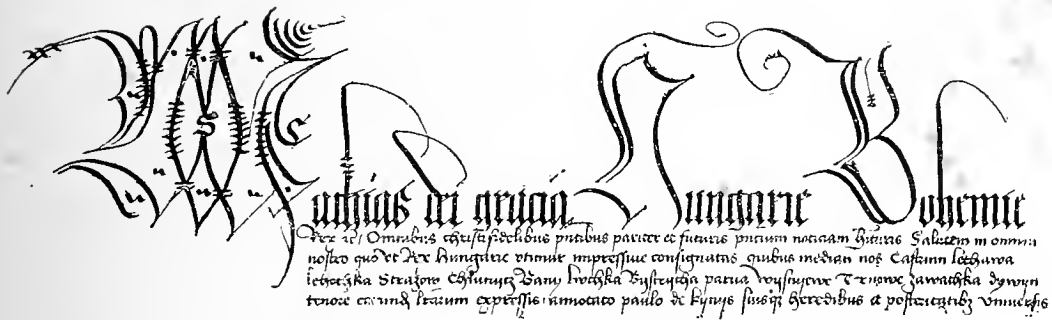 Mathias dei gracia Hungarie Bohemie
Rex rc. Omnibus christifidelibus pntibus pariter et futuris pncium noticiam hituris Salutem in omni
nostro quo ut Rex Hungarie vtimur impressiue consignatas quibus median nos Castrum lethawa
lehothka Strazow Chlumicz Bany lwchka Bystrycha parua wysnyewe Trnowe zawathka dywyn
tenore earund ltarum expressis annotato paulo de kynys suisq heredibus et posteritatibz vniuersis